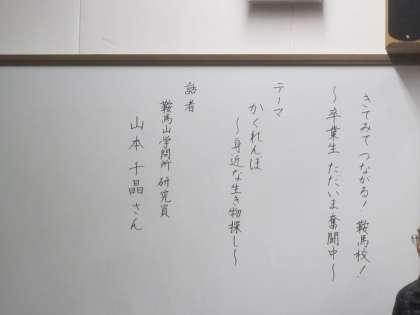 きてみてつながる！ 鞍馬校！
～卒業生 ただいま奮闘中～
テーマ
かくれんぼ
～身近な生き物探し～
話者
鞍馬山学問所 研究員
山本 千晶 さん